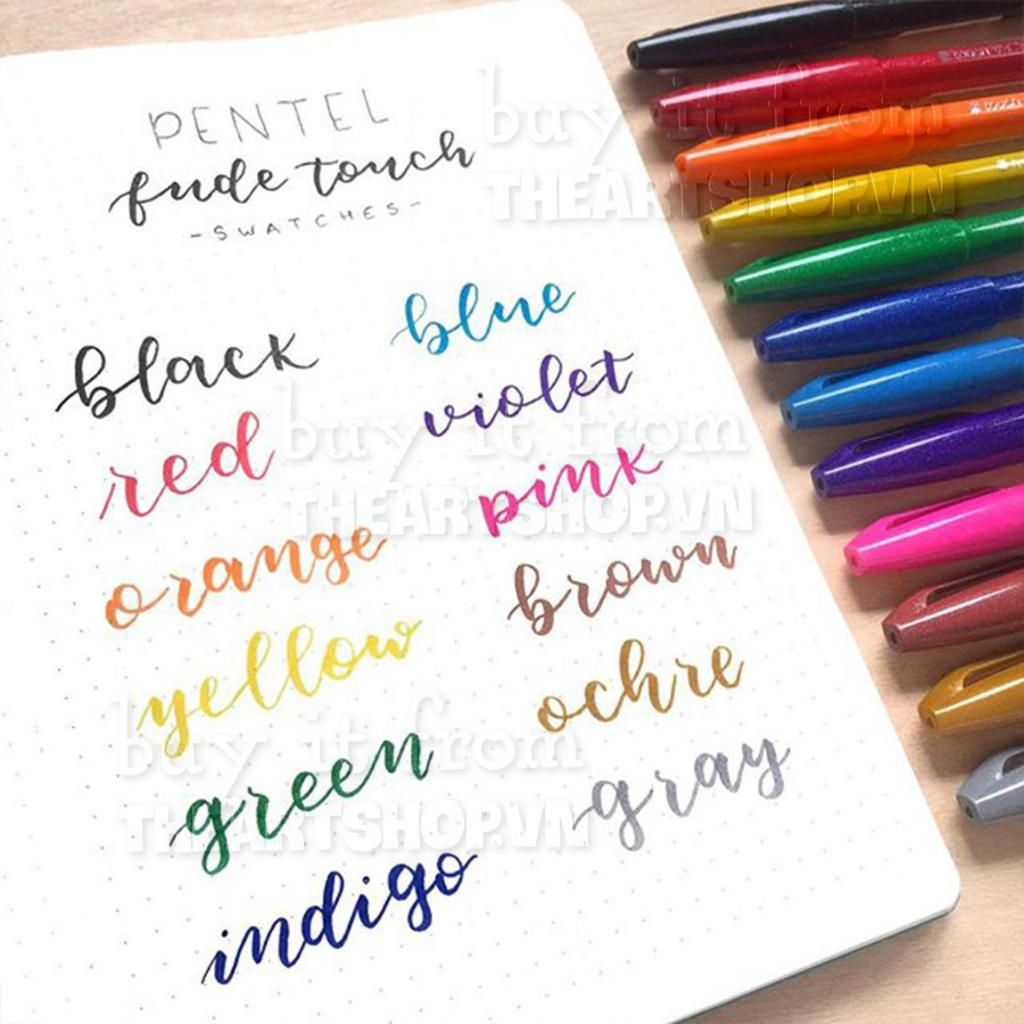 PENTEL
fude touch
-SWATCHES-
black
red
orange
yellow
green
indigo
blue
violet
pink
brown
ochre
gray
buy it from
THEARTSHOP.VN
buy it from
THEARTSHOP.VN
buy it from
THEARTSHOP.VN